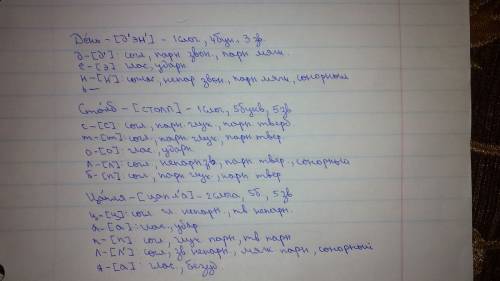 День - [д'эн'] - 1 слог, 4 бук. 3 зв.
д - [д']: согл, парн звон., парн мяг.
е - [э]: глас, ударн
н - [н']: соглас, непар звон, парн мяг, сонорный
ь —
Столб - [столп] - 1 слог, 5 букв, 5 зв
с - [с]: согл, парн глух, парн. тверд
т - [т]: согл, парн глух, парн твер
о - [о]: глас, ударн
л - [л]: согл, непарн зв, парн твер, сонорный
б - [п]: согл, парн глух, парн твер
Цапля - [цапл'а] - 2 слога, 5 б, 5 зв
ц - [ц]: согл гл. непарн, тв непарн.
а - [а]: глас, удар
п - [п]: согл, глух парн, тв парн
л - [л']: согл, зв непарн, мяг парн, сонорный
я - [а]: глас., безуд